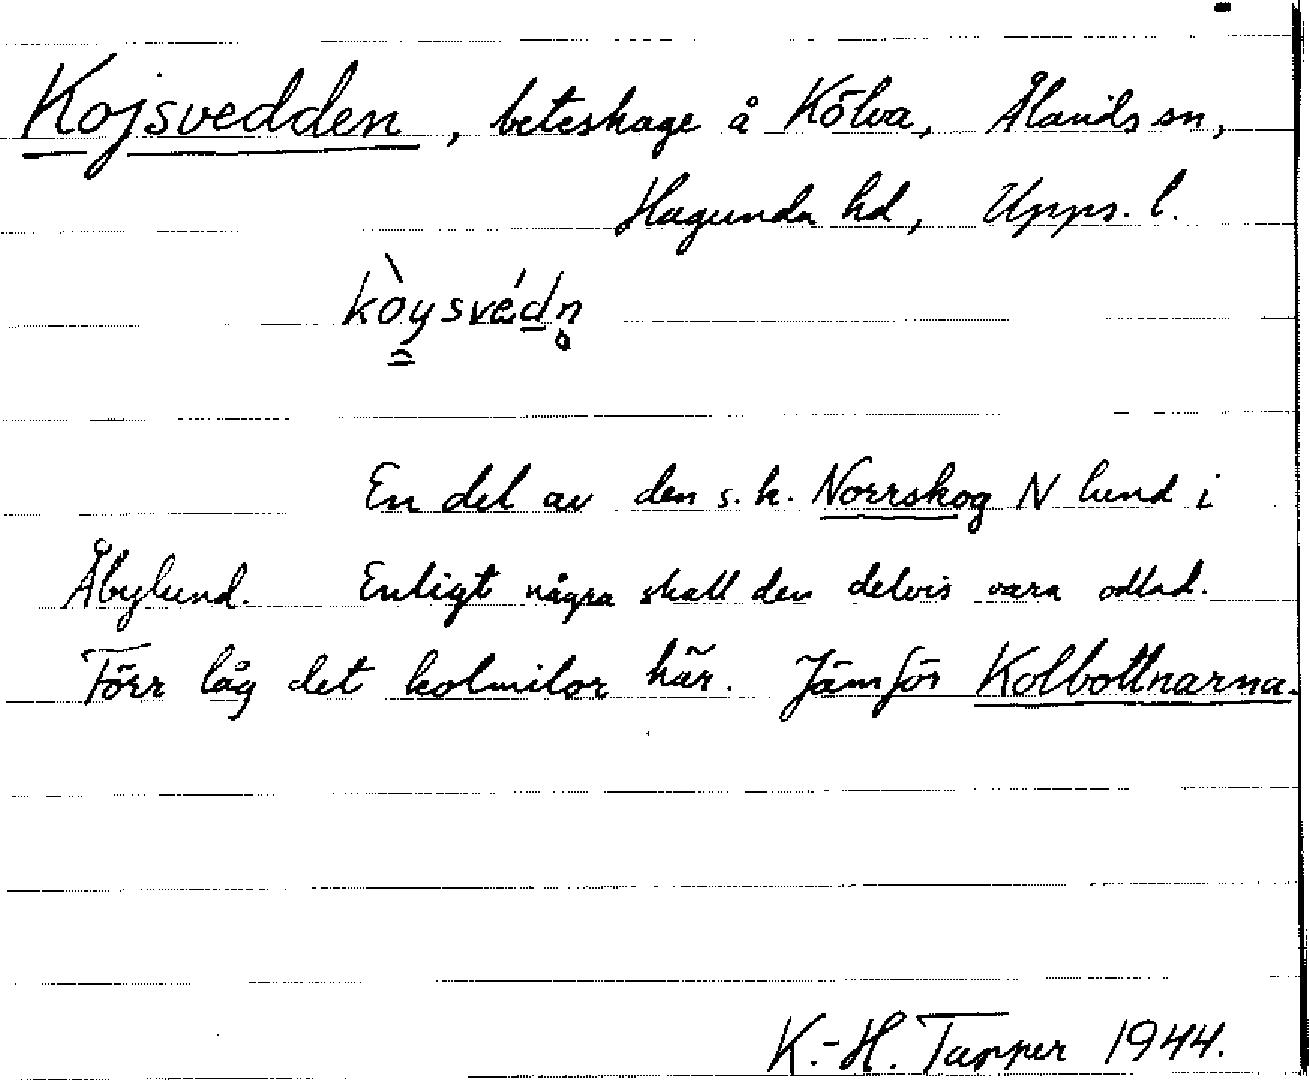 Kojsvedden, beteshage å Kölva, Ålands sn,
Hagunda hd, Upps. l.
kòysvédn̥
En del av den s.k. Norrskog N lund i
Åbylund. Enligt några skall den delvis vara odlad.
Förr låg det kolmilor här. Jämför Kolbottnarna.
K.-H. Tapper 1944.